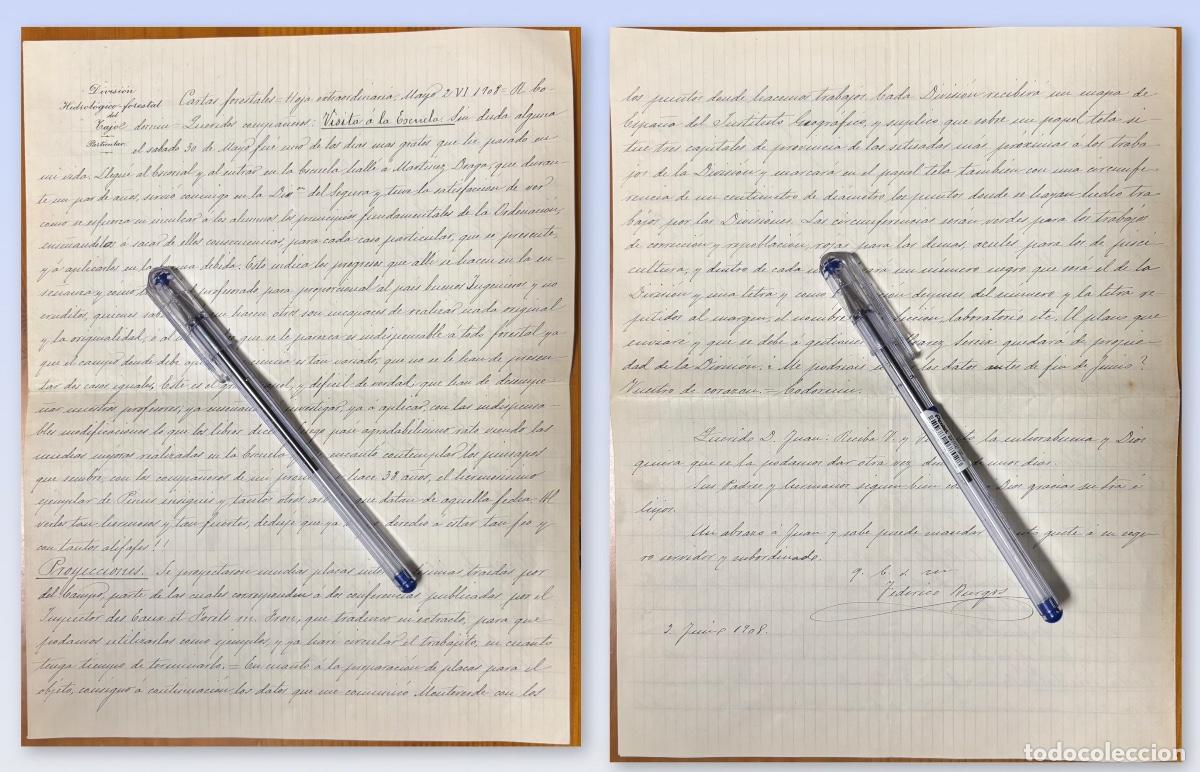 División
Hidrológico-forestal
del
Tajo
Particular
Cartas forestales - Hoja extraordinaria, Mayo 2 VI 1908 = R. Co-
dorniu = Queridos compañeros: Visita á la Escuela. Sin duda alguna
el sabado 30 de Mayo fue uno de los dias mas gratos que he pasado en
mi vida. Llegué al Escorial y al entrar en la Escuela hallé a Martinez que duran-
te un par de años, sirvió conmigo en la del Segura y tuve la satisfaccion de ver
como se esfuerza en inculcar á los alumnos los principios fundamentales de la Ordenación,
enseñandolos á sacar de ellos consecuencias, para cada caso particular, que se presente,
y á aplicarlos en la forma debida. Esto indica los progresos que alli se hacen en la en-
señanza y como profesorado para proporcionar al pais buenos Ingenieros y no
eruditos, quienes hacen otros son incapaces de realizar nada original
y la originalidad, ó al que se le parezca es indispensable á todo forestal ya
que el campo donde debe es tan variado, que no se le han de presen-
tar dos casos iguales. Este es el y dificil de verdad, que han de desempe-
ñar nuestros profesores, ya investigar, ya a aplicar, con las indispensa-
bles modificaciones lo que los libros dicen. Luego pasé agradabilisimo rato viendo las
muchas mejoras realizadas en la Escuela encanto contemplar los paisajes
que sembré, con los compañeros de mi hace 38 años, el hermosisimo
ejemplar de Pinus insignis y tantos otros que datan de aquella fecha. Al
verlos tan hermosos y tan fuertes, deduje que ya derecho á estar tan feo y
con tantos alifafes!!
Proyecciones. Se proyectaron muchas placas traidas por
del Campo, parte de las cuales corresponden á dos conferencias publicadas por el
Inspector des Eaux et Forêts que traducire en extracto, para que
podamos utilizarlas como ejemplos y ya haré circular el trabajito, en cuanto
tenga tiempo de terminarlo. = En cuanto á la preparación de placas para el
objeto, consigno á continuación los datos que me comunicó Monteverde con los
los puntos donde hacemos trabajos. Cada División recibirá un mapa de
España del Instituto Geográfico, y suplico que sobre un papel tela si-
tue tres capitales de provincia de las situadas más proximas á los traba-
jos de la División y marcará en el papel tela tambien con una circunfe-
rencia de un centimetro de diametro los puntos donde se hayan hecho tra-
bajos por las Divisiones. Las circunferencias seran verdes para los trabajos
de corrección y repoblación, rojas para las dunas, azules para los de pisci-
cultura, y dentro de cada una irá un número negro que será el de la
División y una letra y como despues del número y la letra re-
petidos al margen, el nombre laboratorio etc. El plano que
enviare y que se debe a gestiones quedara de propie-
dad de la Division; ¿Me podriais los datos antes de fin de Junio?
Vuestro de corazon = Codorniu.
Querido D. Juan: Reciba V. y la enhorabuena y Dios
quiera que se la podamos dar otra vez dentro de unos dias.
Sus Padres y hermanos siguen bien gracias su tra é
hijos.
Un abrazo á Juan y sabe puede mandar gusto á su segu-
ro servidor y subordinado.
q. b. s. m
Federico Burgos
2 Junio 1908.
todocoleccion